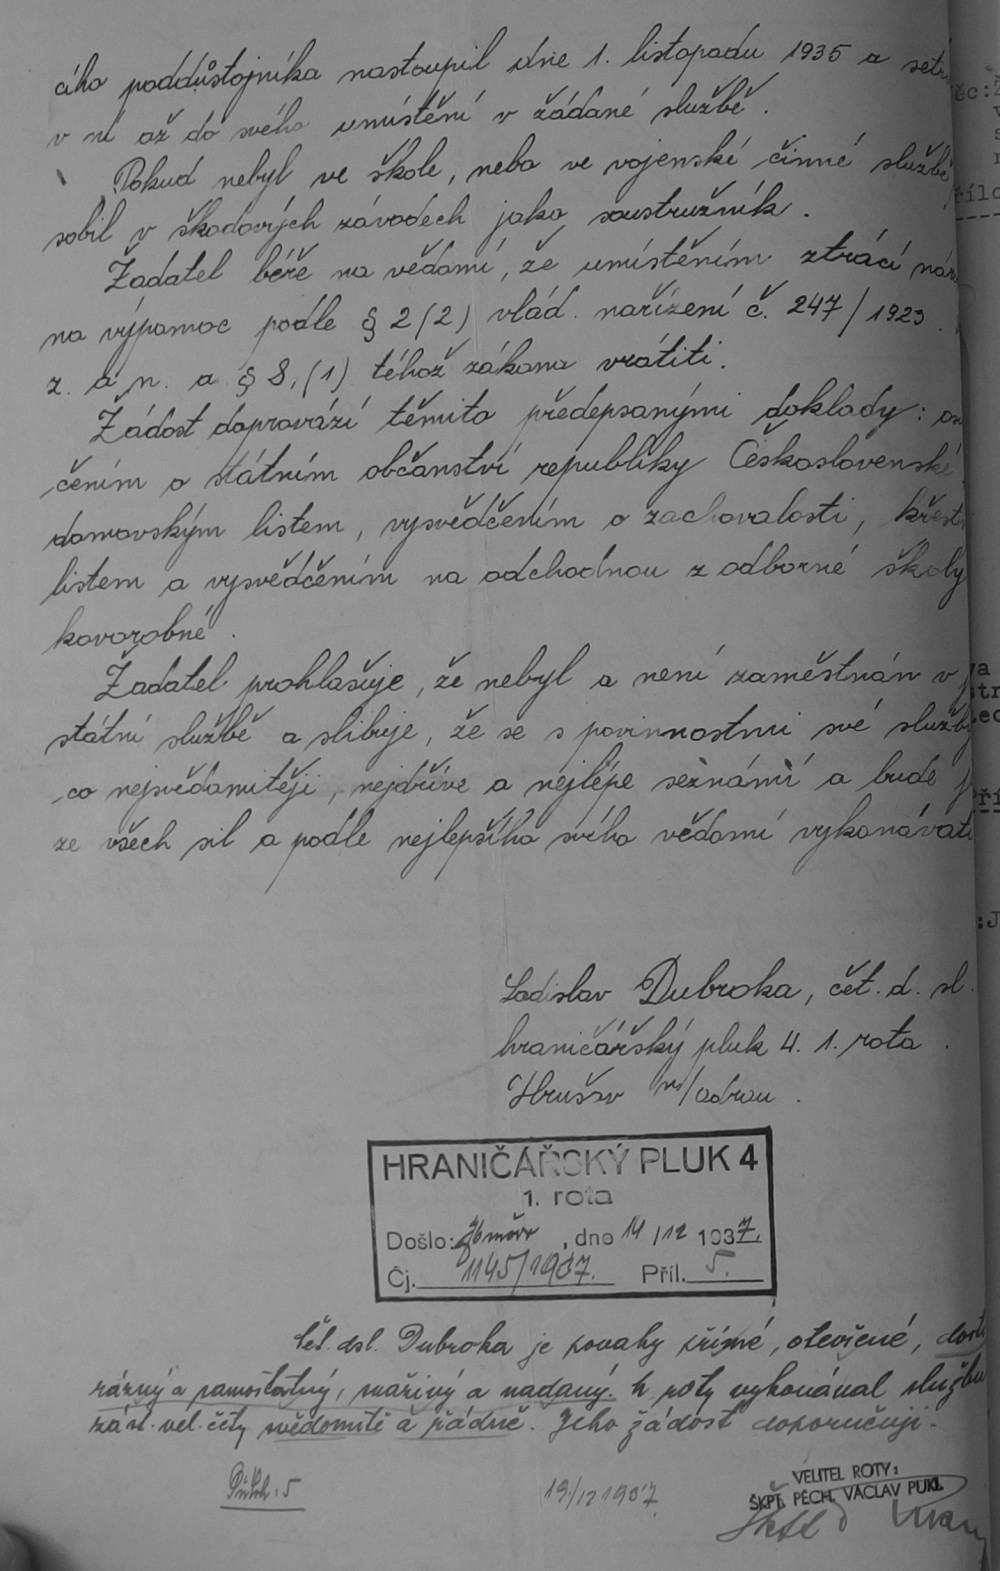 cího poddůstojníka nastoupil dne 1. listopadu 1935 a setr
v ní až do svého umístění v žádané službě.
Pokud nebyl ve škole, nebo ve vojenské činné službě
sobil v škodových závodech jako soustružník.
Žadatel béře na vědomí, že umístěním ztrácí nár
na výpomoc podle § 2 (2) vlád. nařízení č. 247/1923.
z. a n. a § 8, (1) téhož zákona vrátiti.
Žádost doprovází těmito předepsanými doklady: os
čením o státním občanství republiky Československé
domovským listem, vysvědčením o zachovalosti, křest
listem a vysvědčením na odchodnou z odborné školy
kovorobné.
Žadatel prohlašuje, že nebyl a není zaměstnán v
státní službě a slibuje, že se s povinnostmi své služby
co nejsvědomitěji, nejdříve a nejlépe seznámí a bude j
ze všech sil a podle nejlepšího svého vědomí vykonávati
Ladislav Dubroka, čet. d. sl.
hraničářský pluk 4. 1. rota.
Hrušov n/odrou.
HRANIČÁŘSKÝ PLUK 4
1. rota
Došlo: , dne 14/12 1937.
Čj. 1145/1937. Příl. 5.
čet. dsl. Dubroka je povahy přímé, otevřené, dosti
rázný a samostatný, snaživý a nadaný. U roty vykonával službu
zást. vel. čety svědomitě a řádně. Jeho žádost doporučuji.
Příloh: 5
19/12 1937
VELITEL ROTY:
ŠKPT. PĚCH. VÁCLAV PUKL